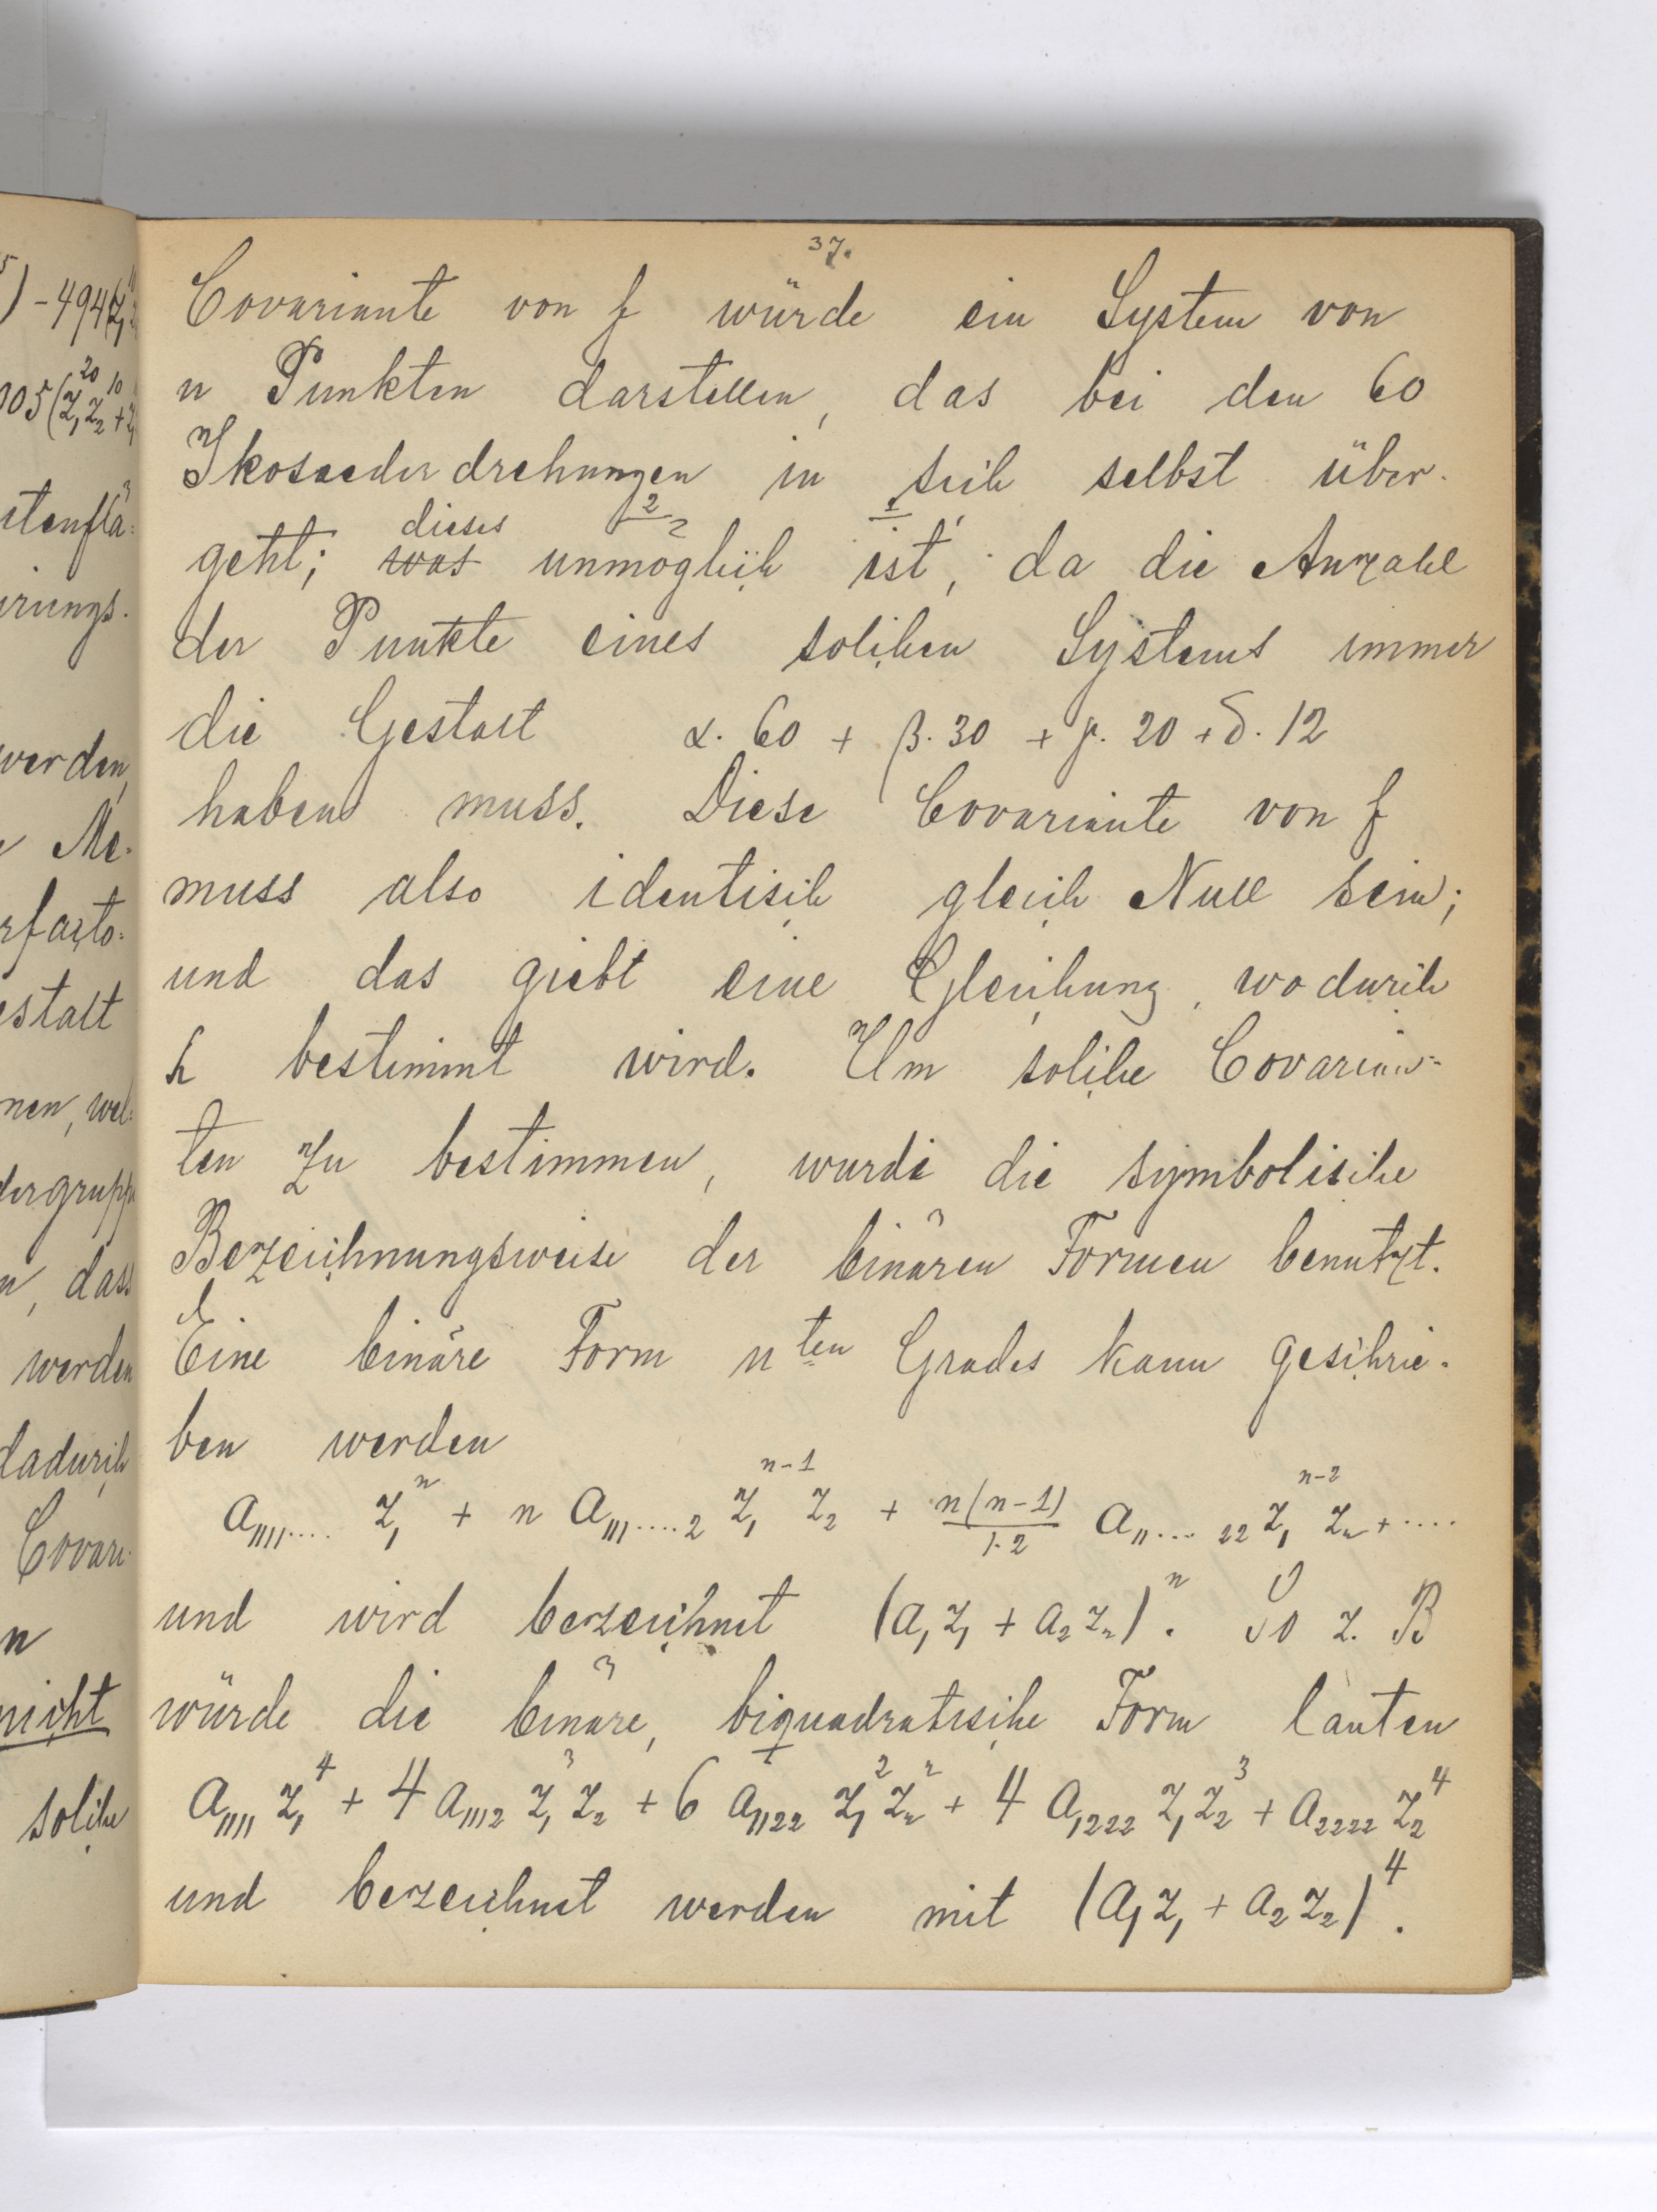 37.
Covariante von f würde ein System von
n Punkten darstellen, das bei den 60
Ikosaederdrehungen in sich selbst über-
geht; was dieses unmöglich 2 ist 1, da die Anzahl
der Punkte eines solchen Systems immer
die Gestalt α. 60 + β. 30 + γ. 20 + δ. 12
haben muss. Diese Covariante von f
muss also identisch gleich Null sein;
und das giebt eine Gleichung, wodurch
h bestimmt wird. Um solche Covarian-
ten zu bestimmen, wurde die symbolische
Bezeichnungsweise der binären Formen benutzt.
Eine binäre Form nten Grades kann geschrie-
ben werden
a₁₁₁₁.... z₁ⁿ + n a₁₁₁....₂ z₁ⁿ⁻¹ z₂ + n(n-1)/1·2 a₁₁...₂₂ z₁ⁿ⁻² z₂ + ....
und wird bezeichnet (a₁z₁ + a₂z₂)ⁿ. So z. B
würde die binäre, biquadratische Form lauten
a₁₁₁₁ z₁⁴ + 4 a₁₁₁₂ z₁³ z₂ + 6 a₁₁₂₂ z₁² z₂² + 4 a₁₂₂₂ z₁ z₂³ + a₂₂₂₂ z₂⁴
und bezeichnet werden mit (a₁z₁ + a₂z₂)⁴.